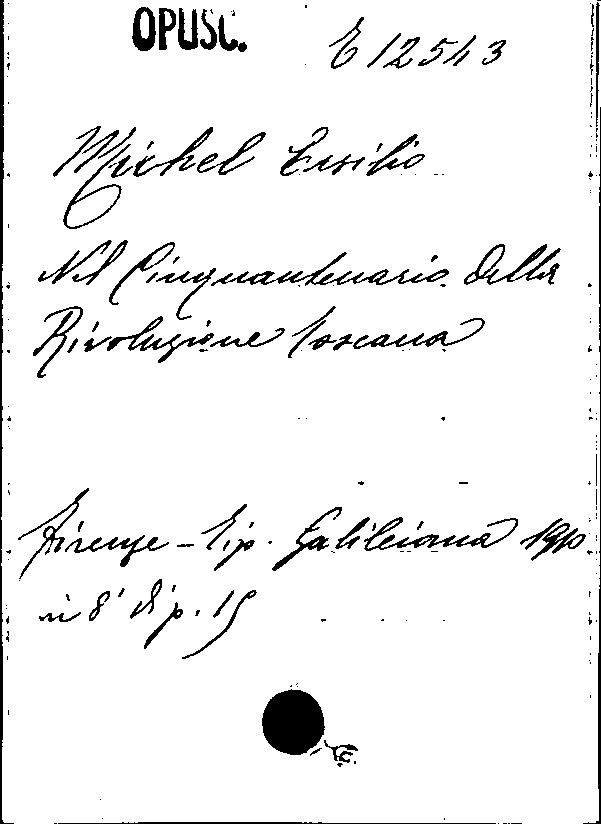 OPUSC.
E 12543
Michel Ersilio
Nel Cinquantenario della
Rivoluzione Toscana
Firenze - Tip. Galileiana 1910
in 8° di p. 15